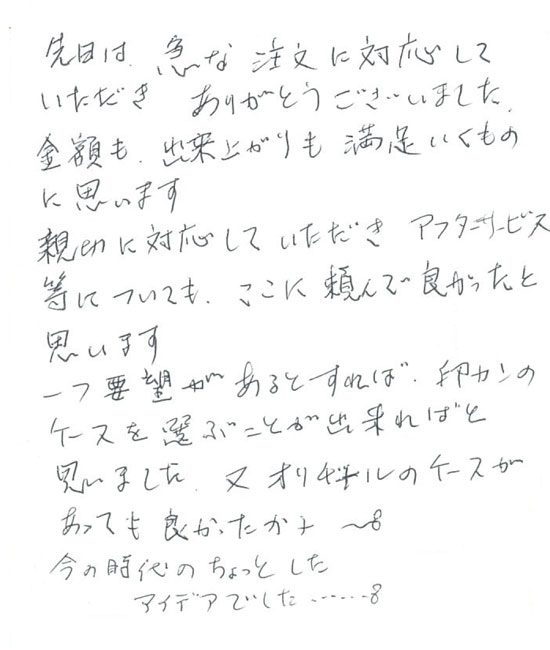 先日は、急な注文に対応して
いただき ありがとうございました。
金額も、出来上がりも満足いくもの
に思います
親切に対応していただき アフターサービス
等についても、ここに頼んで良かったと
思います
一つ要望があるとすれば、印カンの
ケースを選ぶことが出来ればと
思いました。又オリジナルのケースが
あっても良かったかナ 〜8
今の時代のちょっとした
アイデアでした……8